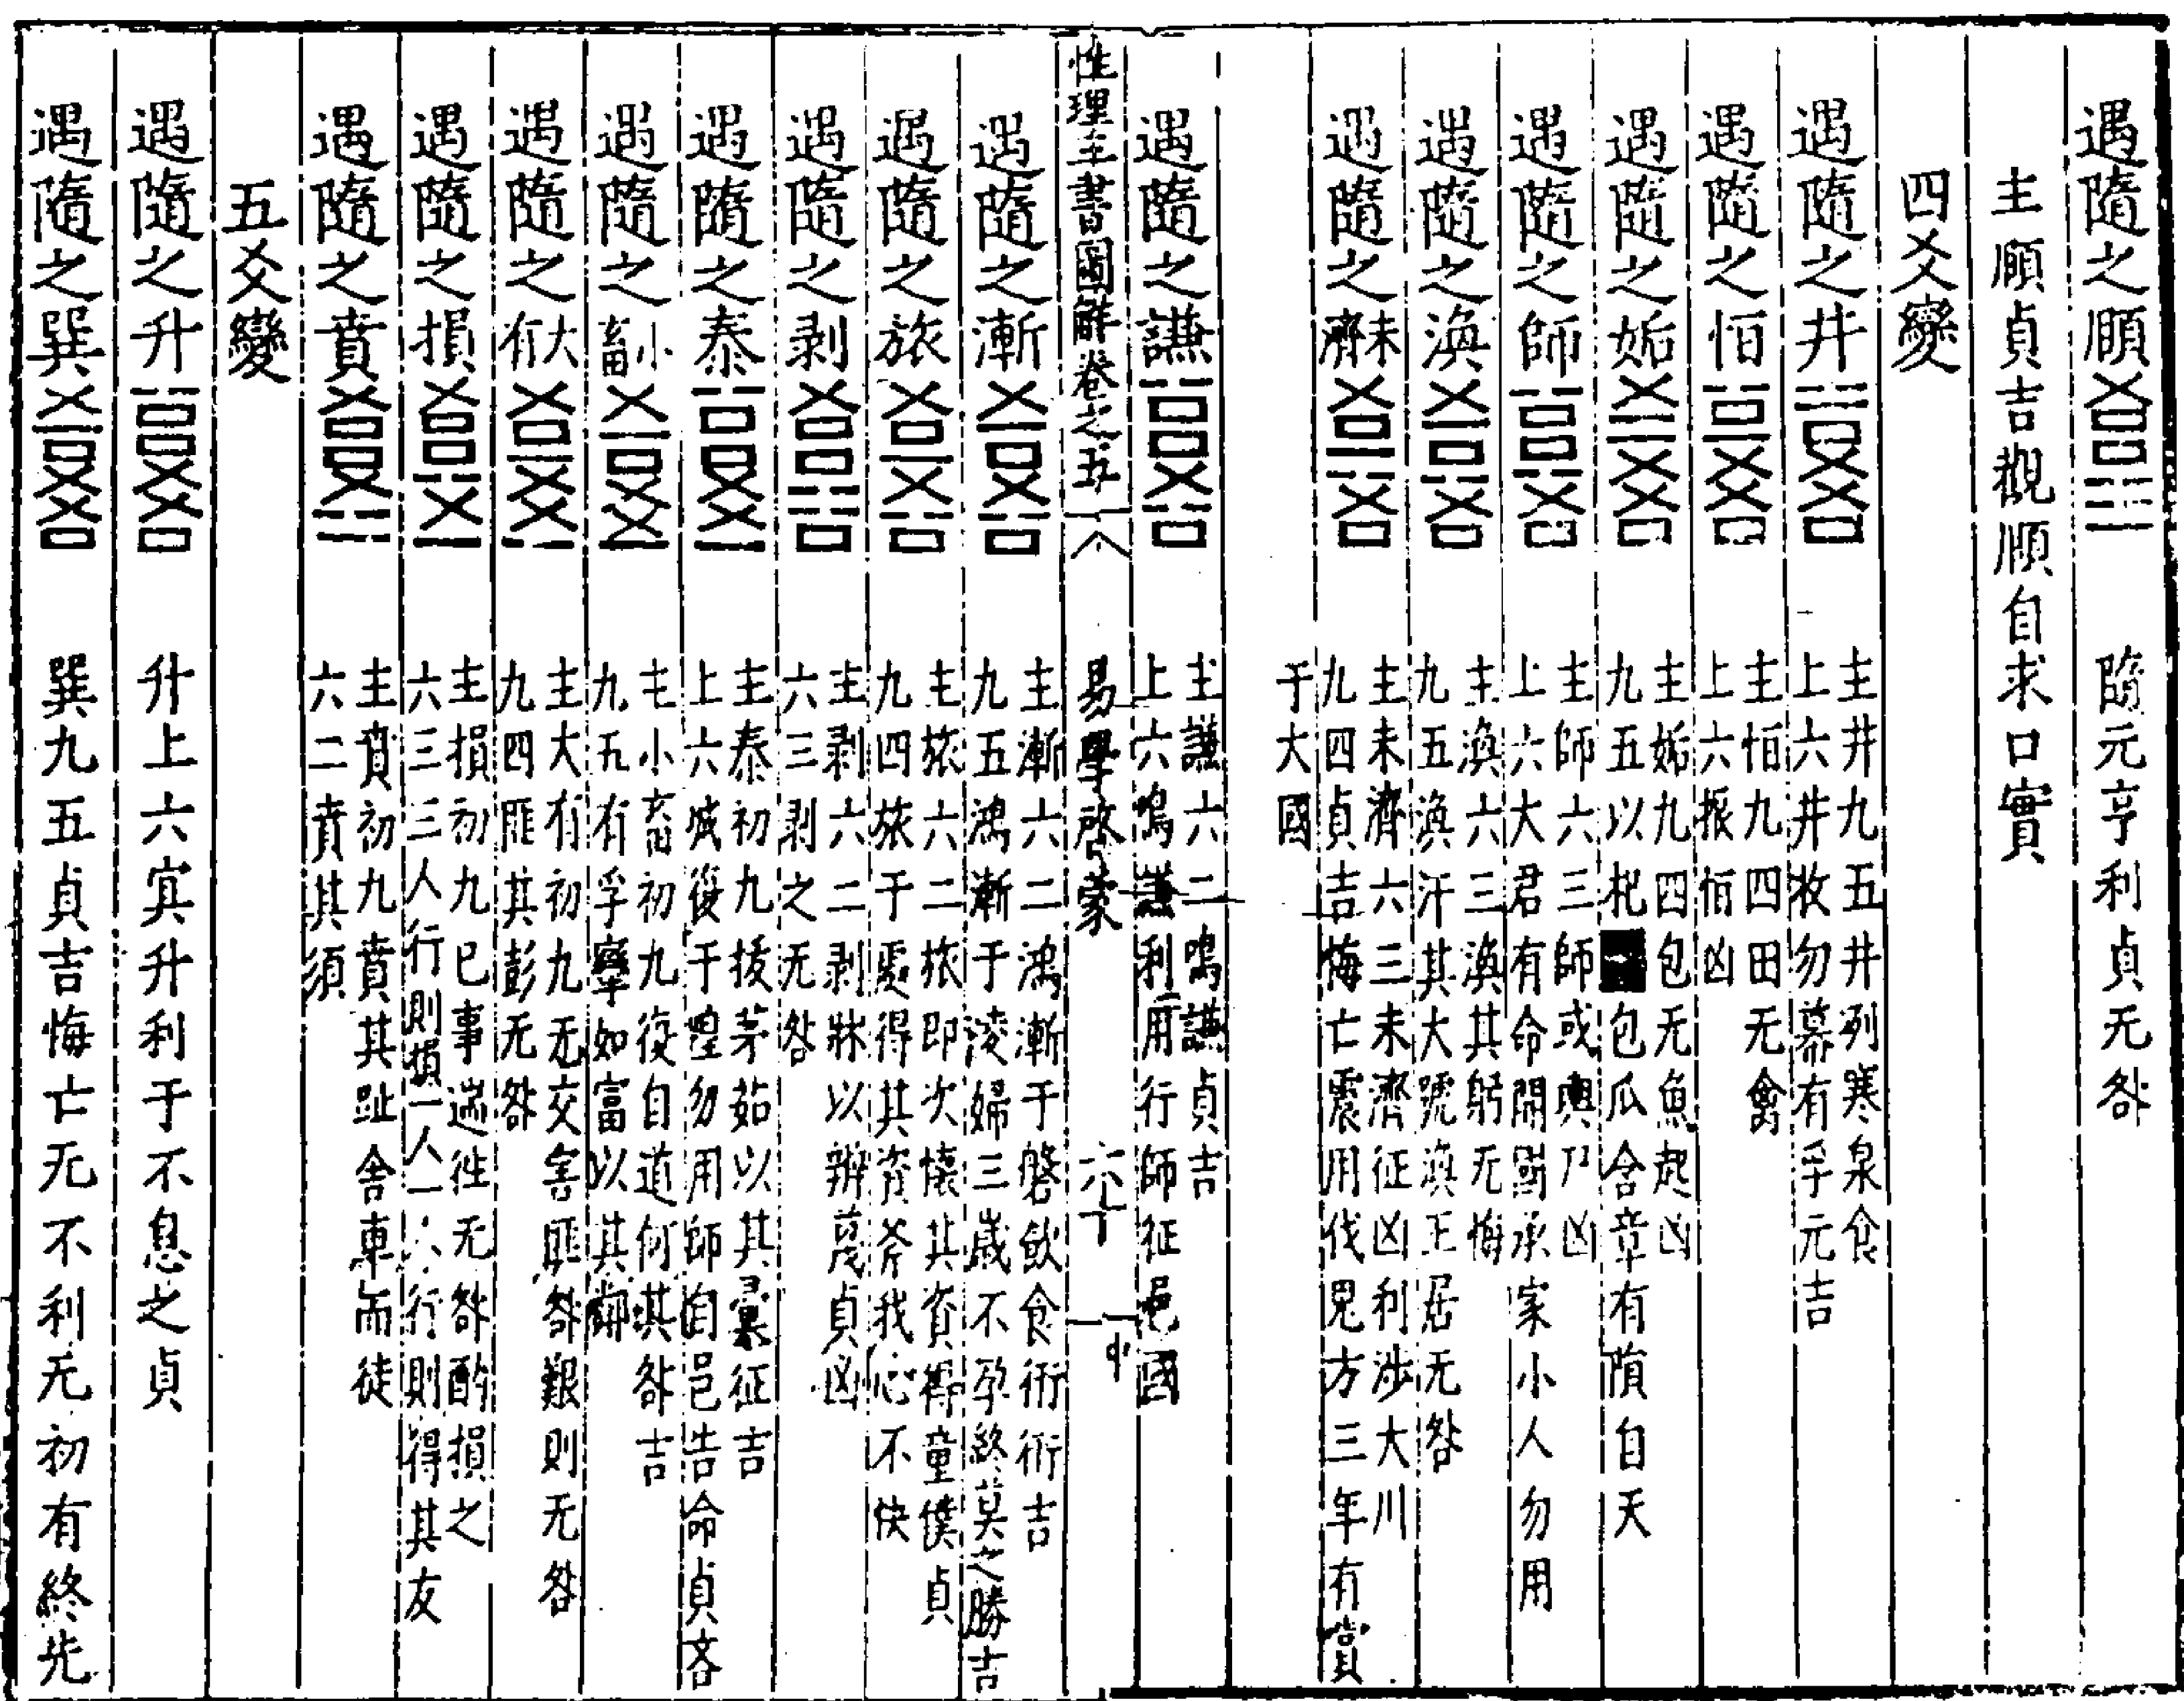 遇隨之頤 隨元亨利貞无咎
主頤貞吉觀頤自求口實
四爻變
遇隨之井 主井九五井冽寒泉食
上六井收勿幕有孚元吉
遇隨之恒 主恒九四田无禽
上六振恒凶
遇隨之姤 主姤九四包无魚起凶
九五以杞包瓜含章有隕自天
遇隨之師 主師六三師或輿尸凶
上六大君有命開國承家小人勿用
遇隨之渙 主渙六三渙其躬无悔
九五渙汗其大號渙王居无咎
遇隨之未濟 主未濟六三未濟征凶利涉大川
九四貞吉悔亡震用伐鬼方三年有賞
于大國
遇隨之謙 主謙六二鳴謙貞吉
上六鳴謙利用行師征邑國
性理全書圖解卷之五 易學啓蒙 六十
遇隨之漸 主漸六二鴻漸于磐飲食衎衎吉
九五鴻漸于陵婦三歲不孕終莫之勝吉
遇隨之旅 主旅六二旅即次懷其資得童僕貞
九四旅于處得其資斧我心不快
遇隨之剥 主剥六二剥牀以辨蔑貞凶
六三剥之无咎
遇隨之泰 主泰初九拔茅茹以其彙征吉
上六城復于隍勿用師自邑告命貞吝
遇隨之小畜 主小畜初九復自道何其咎吉
九五有孚攣如富以其鄰
遇隨之大有 主大有初九无交害匪咎艱則无咎
九四匪其彭无咎
遇隨之損 主損初九已事遄徃无咎酌損之
六三三人行則損一人一人行則得其友
遇隨之賁 主賁初九賁其趾舍車而徒
六二賁其須
五爻變
遇隨之升 升上六冥升利于不息之貞
遇隨之巽 巽九五貞吉悔亡无不利无初有終先